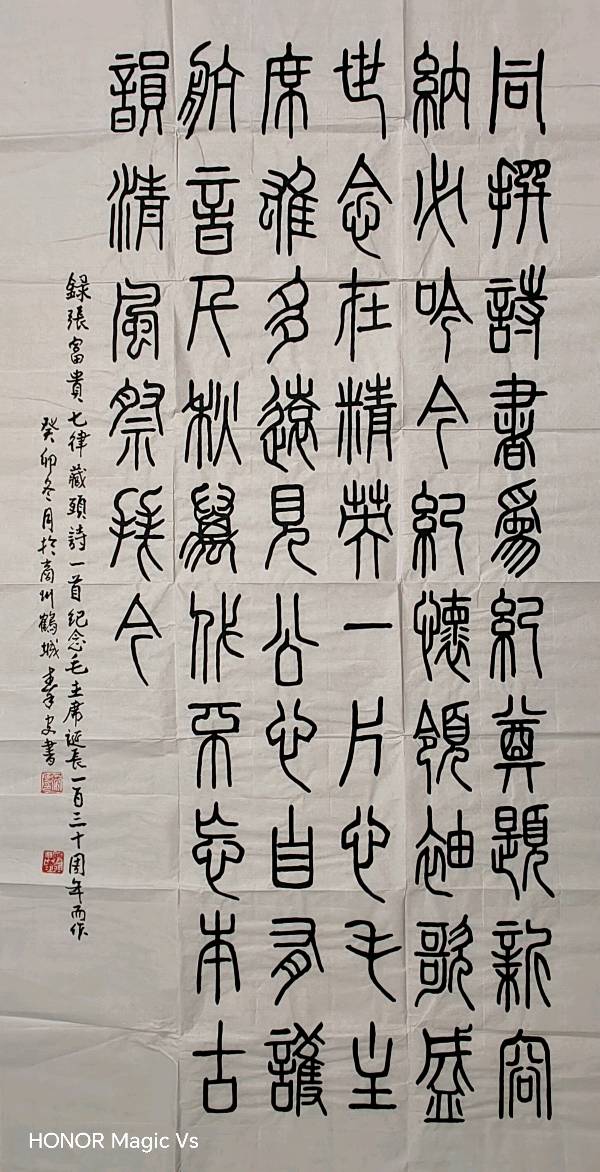 同撰詩書為紀奠題新容
納必吟今紀懷領袖歌盛
世念在精英一片心毛主
席雖多遠見公心自有護
航音千秋萬代不忘本古
韻清風祭拜今
錄張富貴七律藏頭詩一首紀念毛主席誕辰一百三十周年而作
癸卯冬月於商州鶴城書
HONOR Magic Vs